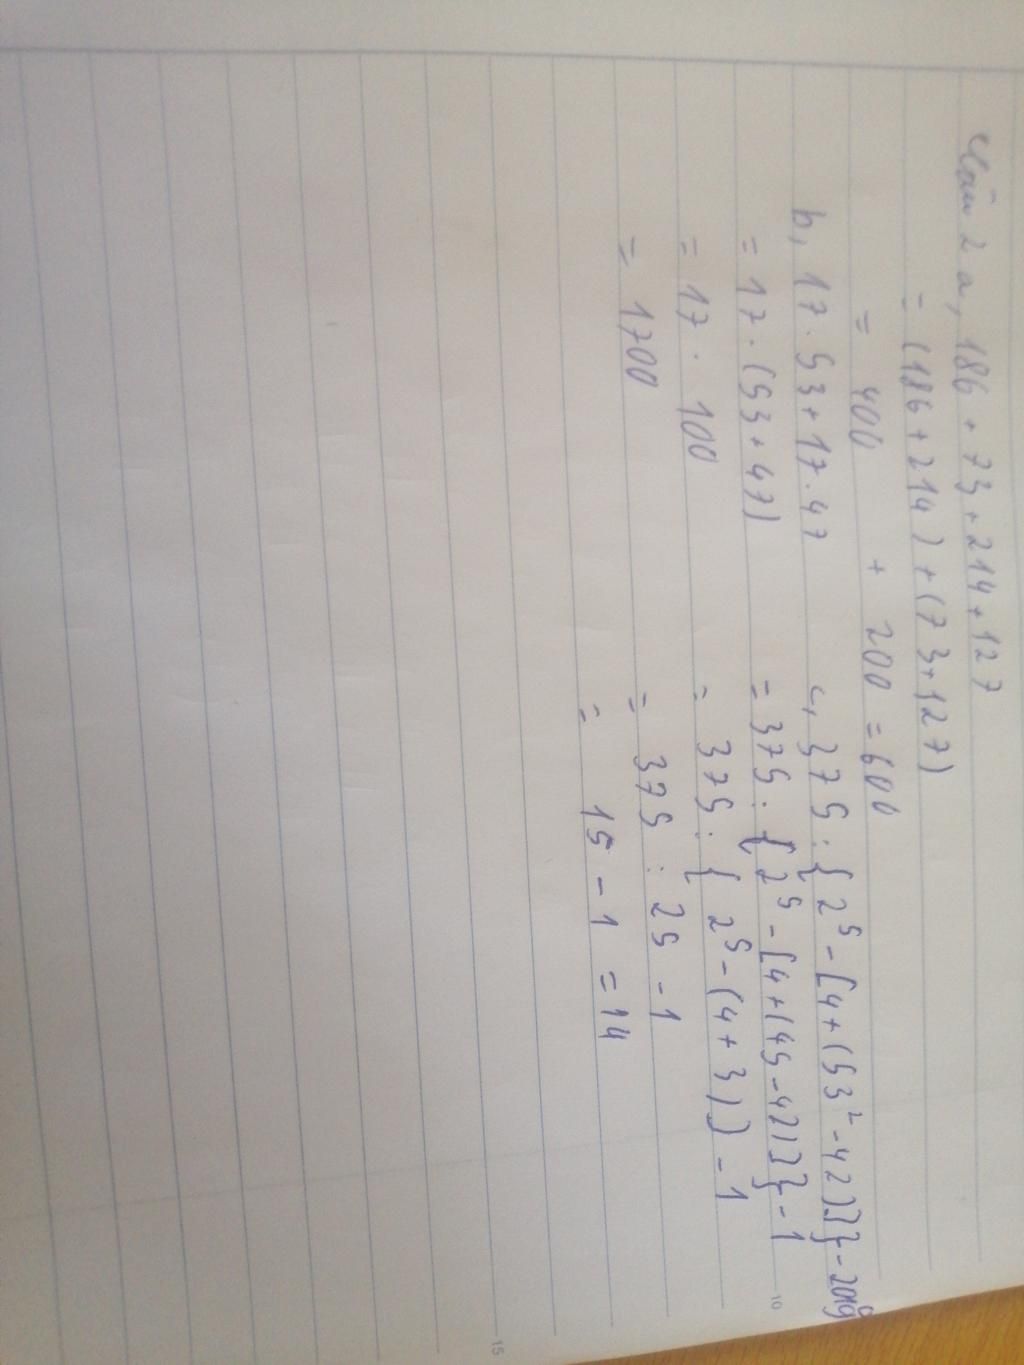 Câu 2 a, 186 + 73 + 214 + 127
= (186 + 214) + (73 + 127)
= 400 + 200 = 600
b, 17 . 53 + 17 . 47
= 17 . (53 + 47)
= 17 . 100
= 1700
c, 375 : { 2⁵ - [4 + (53² - 42)]} - 2019⁰
= 375 : { 2⁵ - [4 + (45 - 42)]} - 1
= 375 : { 2⁵ - (4 + 3)} - 1
= 375 : 25 - 1
= 15 - 1 = 14
10
15